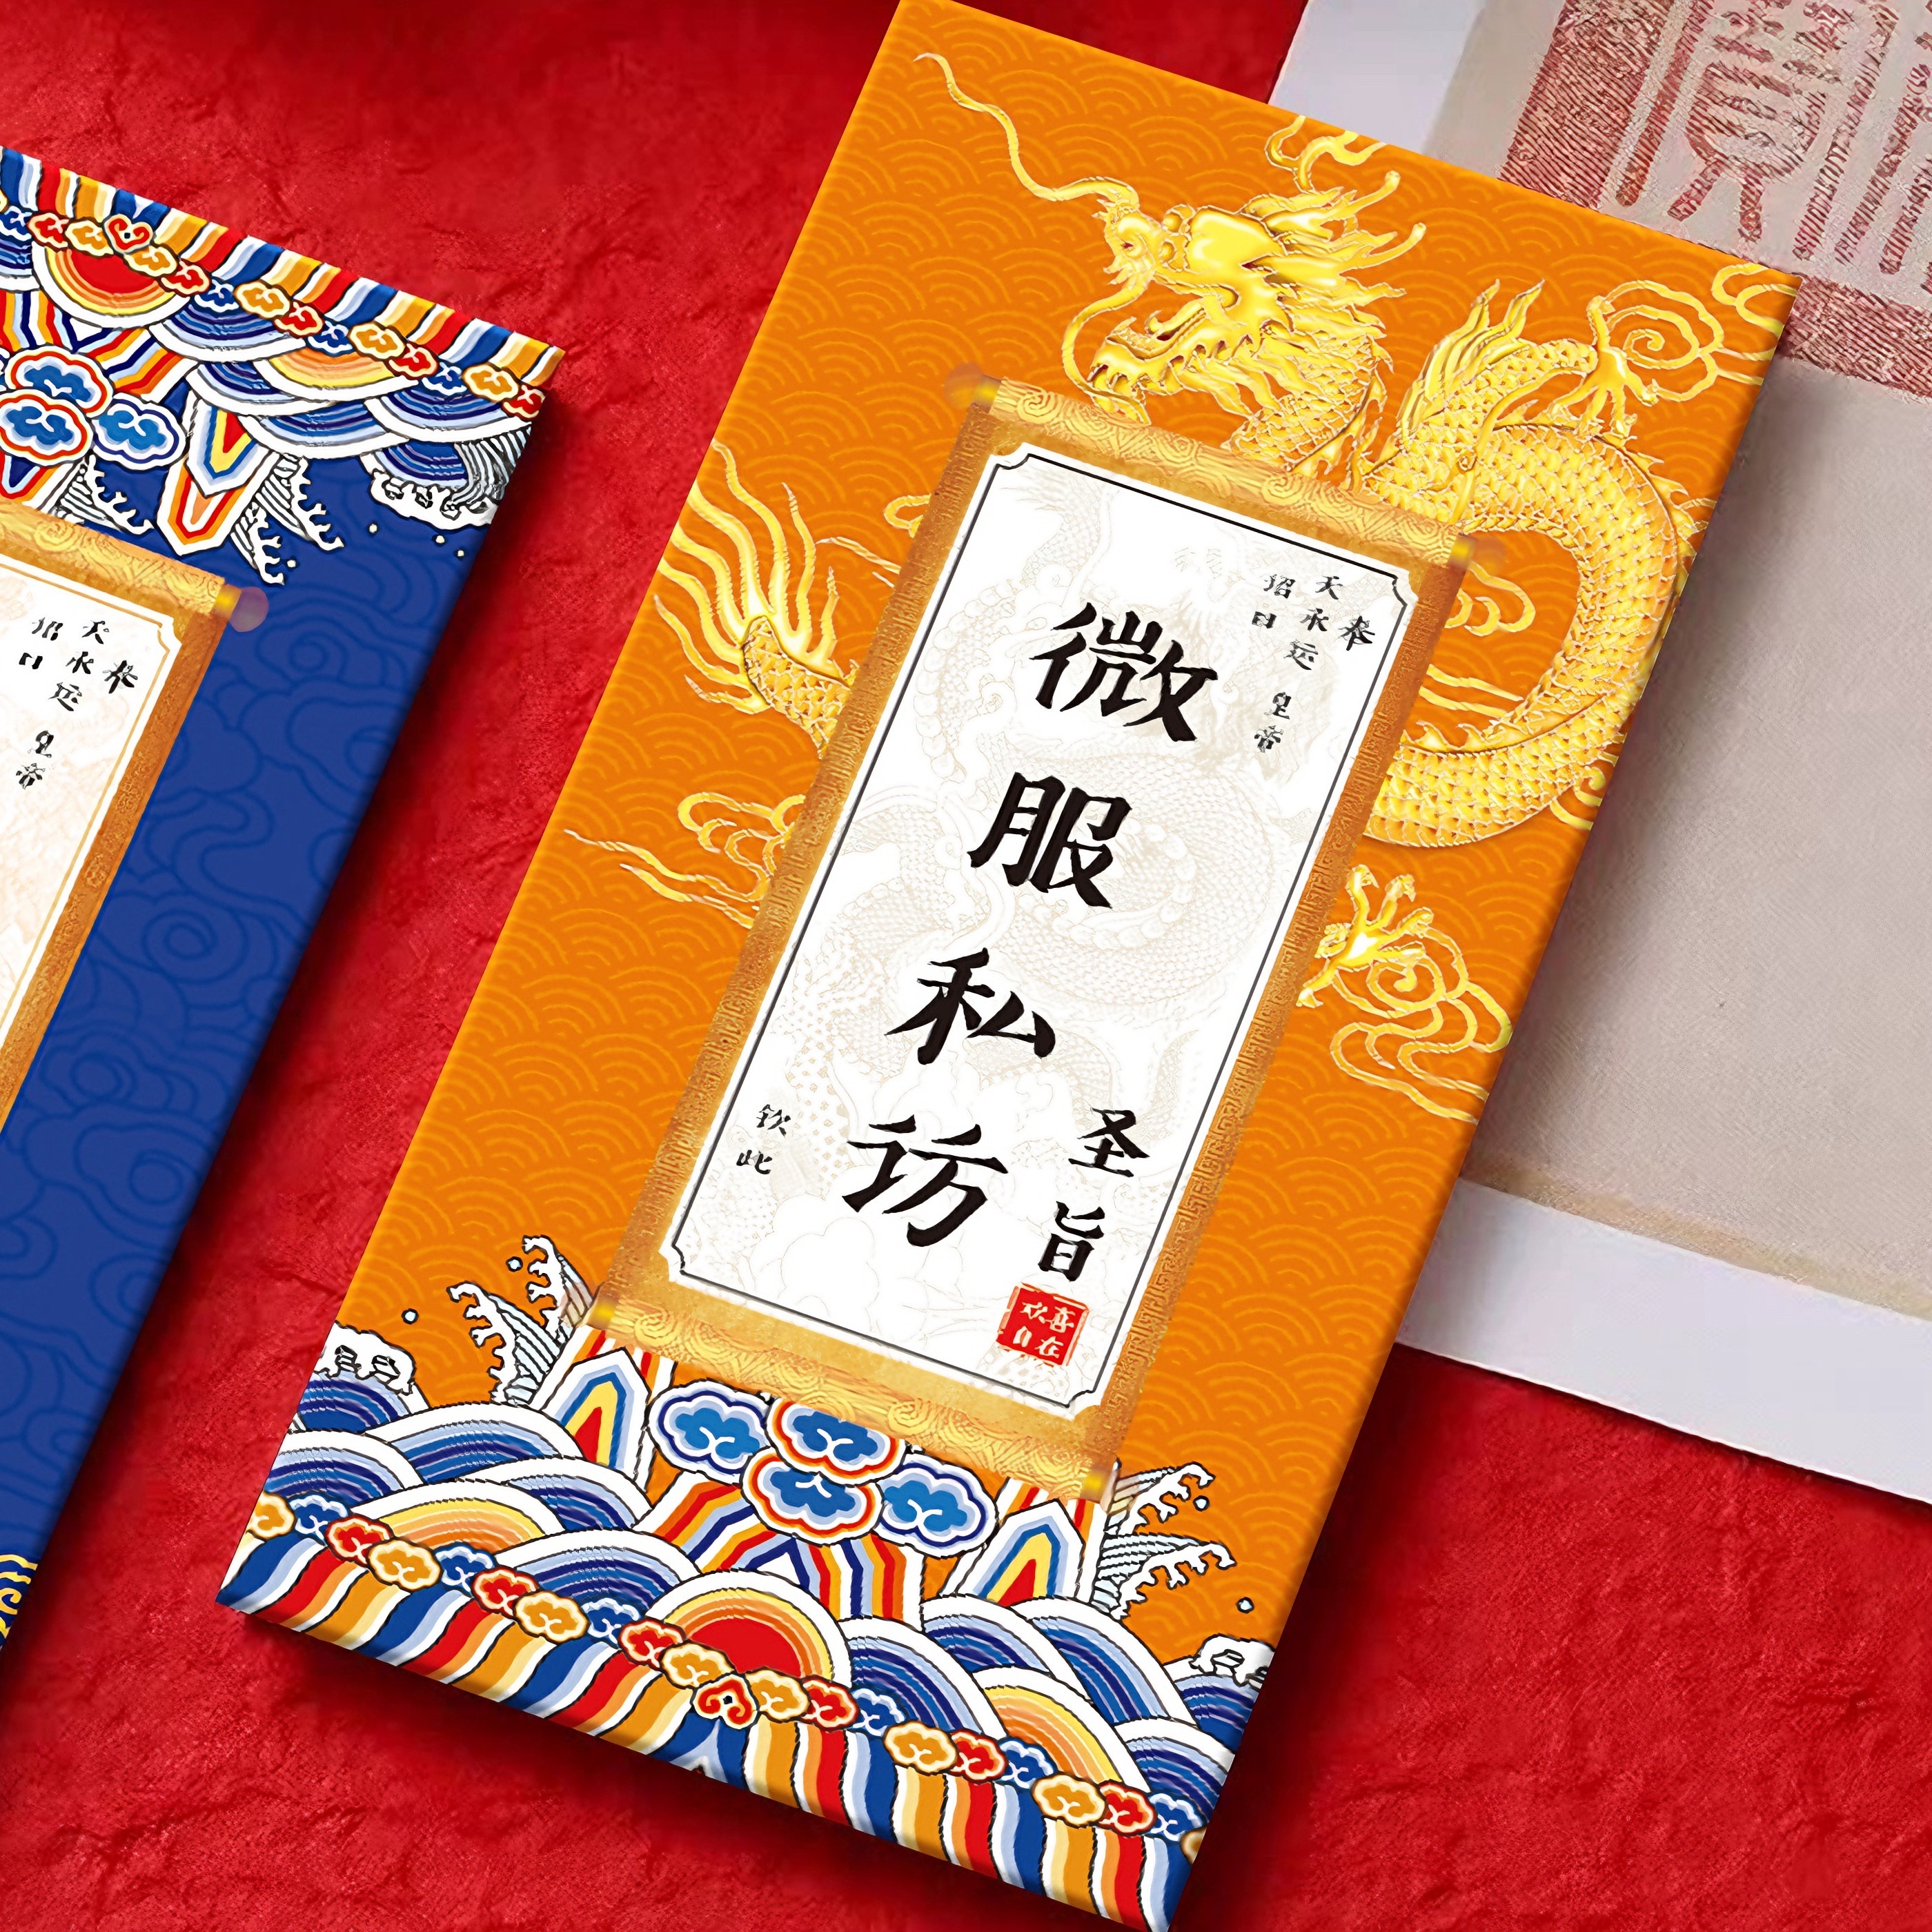 奉
天承运 皇帝
诏曰
奉
天承运 皇帝
诏曰
微服私访
圣旨
欢喜
自在
钦此